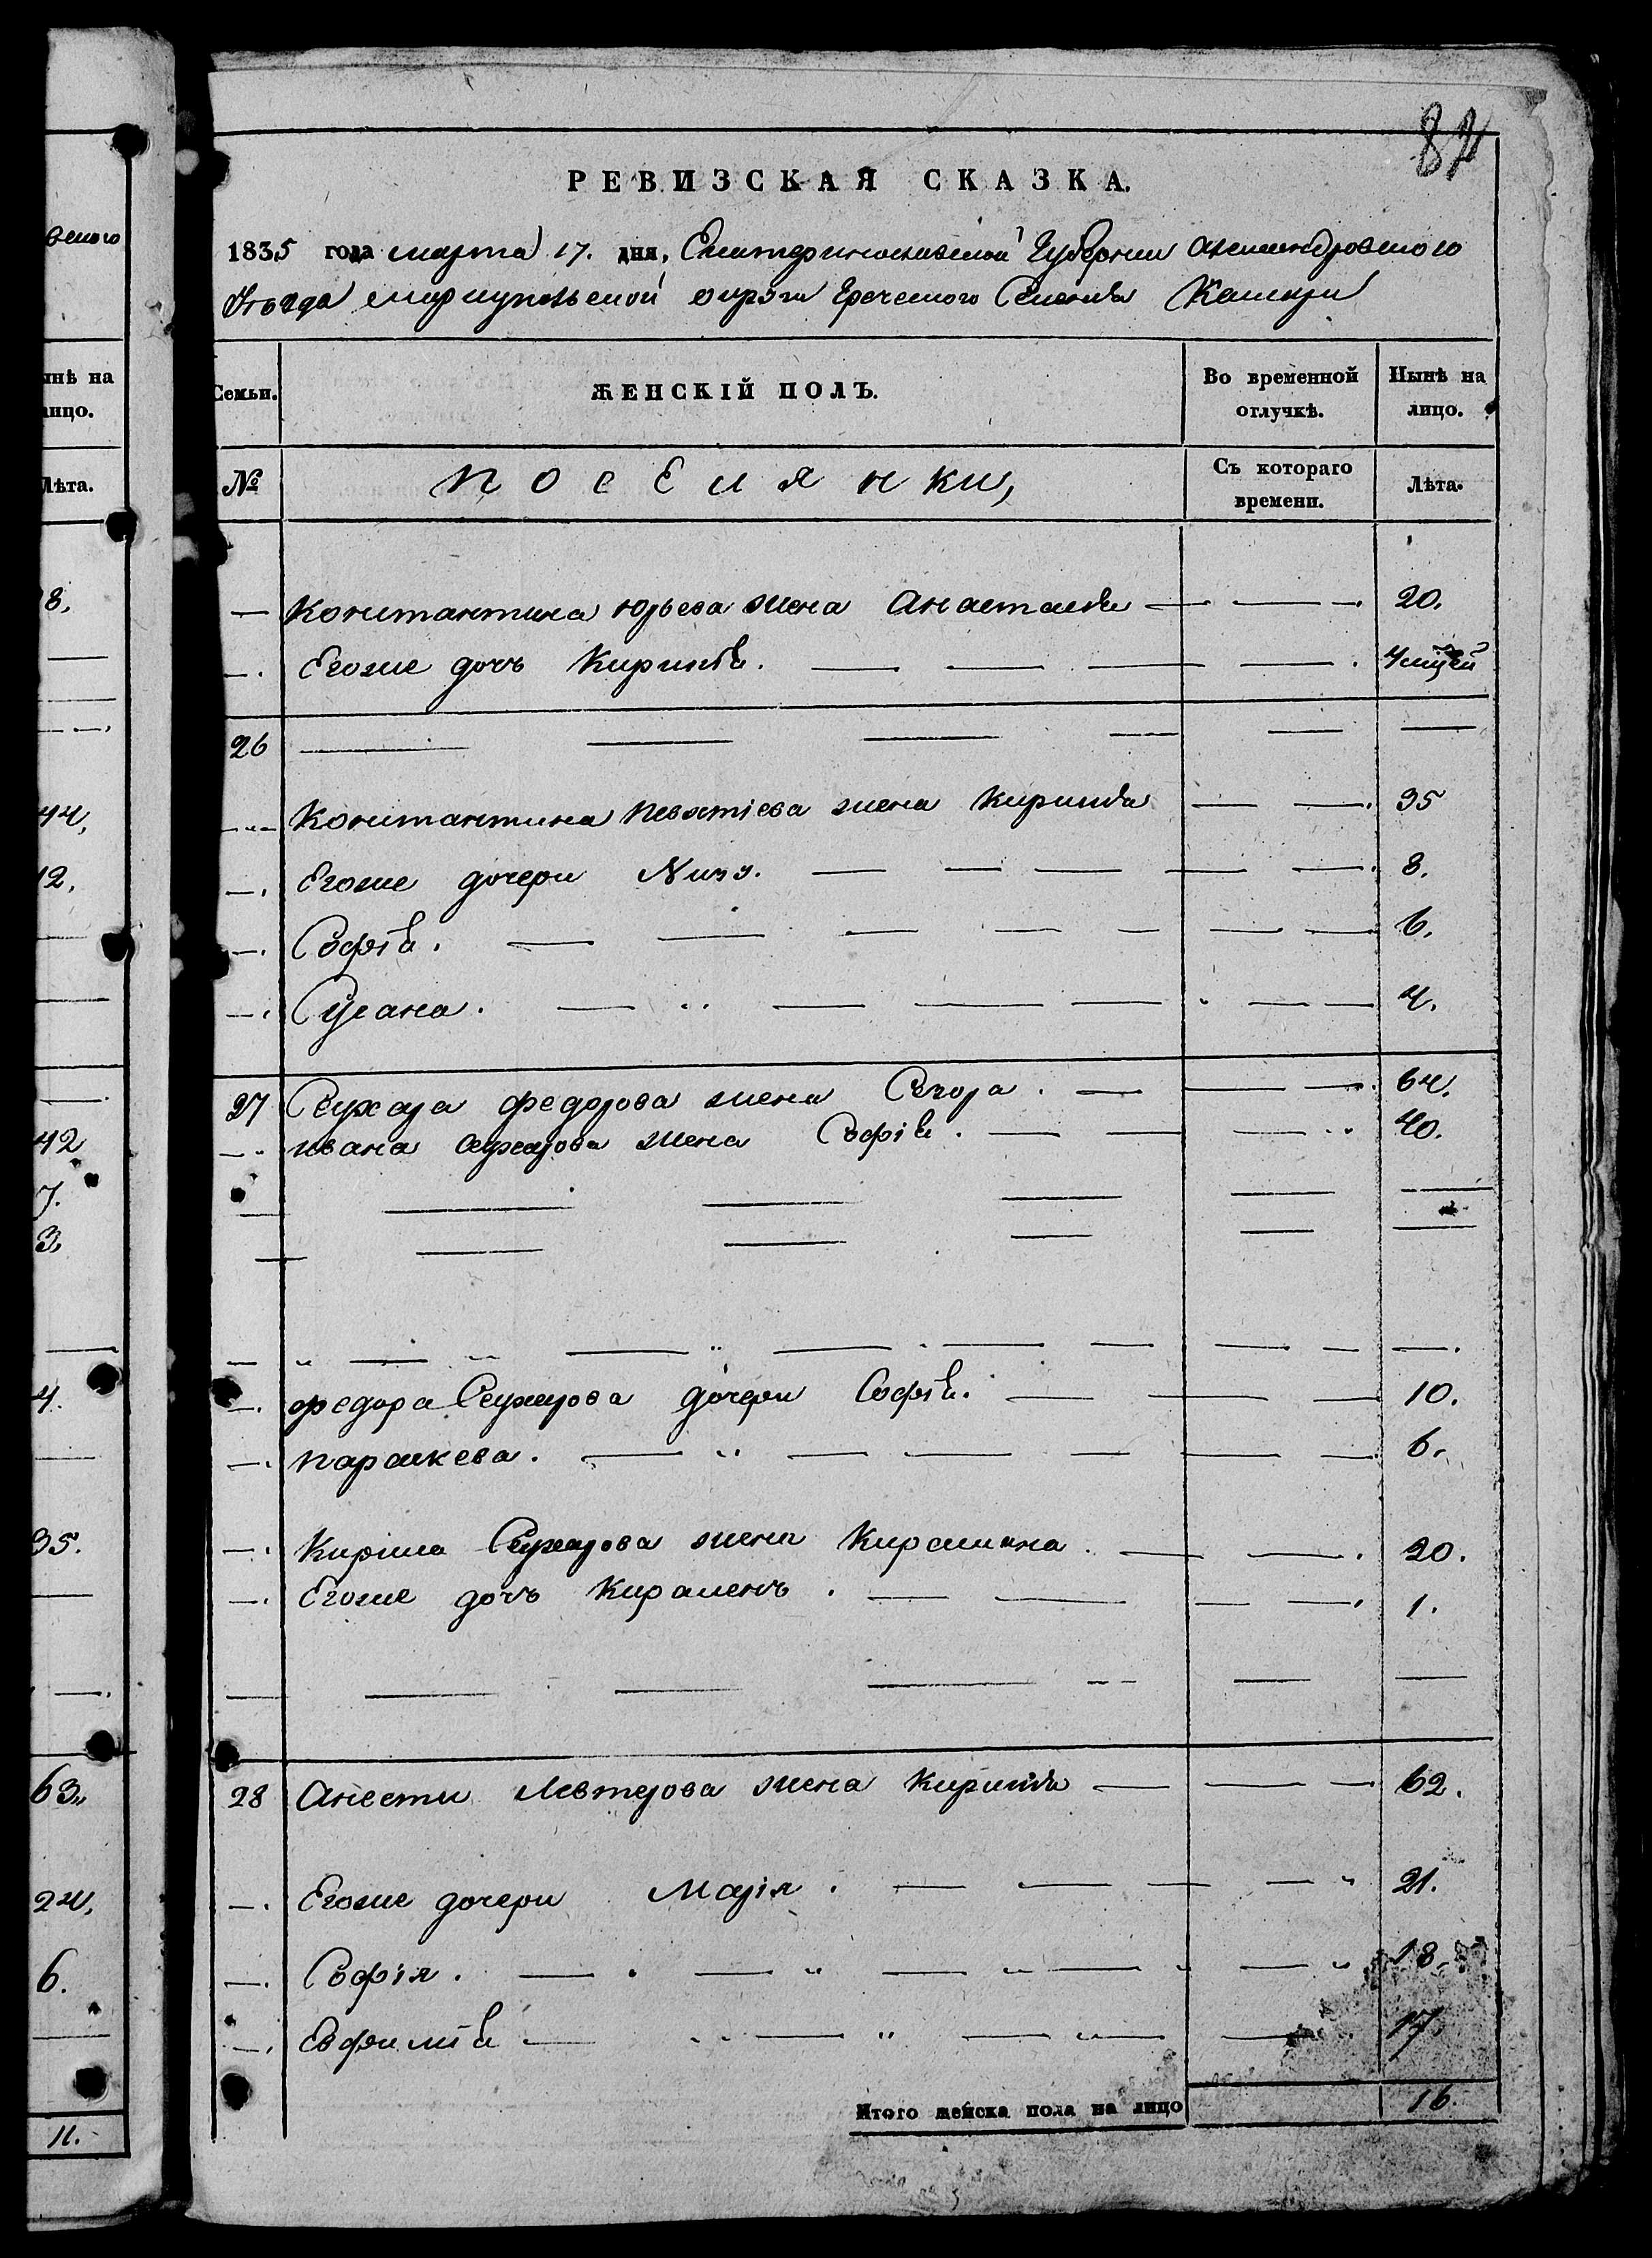 82
РЕВИЗСКАЯ СКАЗКА.
1835 года марта 17. дня, Екатеринославской Губернии Александровского
Уѣзда Мариупольской округи Греческого Селенія
Семьи. ЖЕНСКІЙ ПОЛЪ. Во временной отлучкѣ. Нынѣ на лицо.
№ Поселянки, Съ котораго времени. Лѣта.
— Константина Юрьева жена Анастасія — — 20.
— Егоже дочь Киріакія. — — — — 4
26 — — — — — —
— Константина жена Киріакія — — 35
— Егоже дочери — — — — — 8.
— Софія. — — — — — — — 6.
— Сусана. — — — — — — 4.
27 федорова жена — — — 64.
— Ивана жена Софія. — — — 40.
— — — — — —
— — — — — —
— — — — — — — —
— федора дочери Софія. — — — — 10.
— параскева. — — — — — — 6.
— жена — — 20.
— Егоже дочь — — — — 1.
— — — — — —
28 Анести Левтерова жена Киріакія — — — 62.
— Егоже дочери Марія. — — — — 21.
— Софія. — — — — — 18.
— Евфимія — — — — 17.
Итого женска пола на лицо 16.
вского
ынѣ на
лицо.
Лѣта.
8.
44.
12.
42
7.
3.
4.
35.
63.
24.
6.
11.